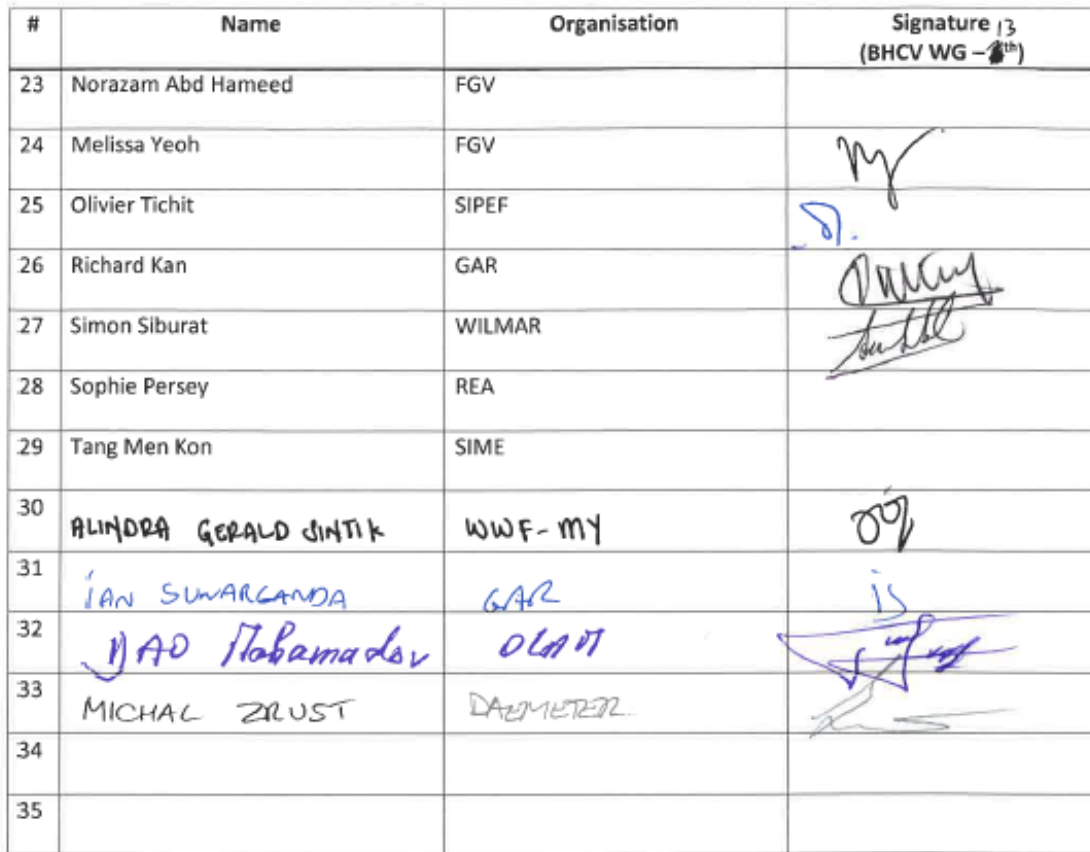 # Name Organisation Signature 13
(BHCV WG – th)
23 Norazam Abd Hameed FGV
24 Melissa Yeoh FGV
25 Olivier Tichit SIPEF
26 Richard Kan GAR
27 Simon Siburat WILMAR
28 Sophie Persey REA
29 Tang Men Kon SIME
30 ALINDRA GERALD SINTIK WWF-MY
31 IAN SUWARGANDA GAR is
32 Mahamadou OLAM
33 MICHAL ZRUST DAEMETER
34
35